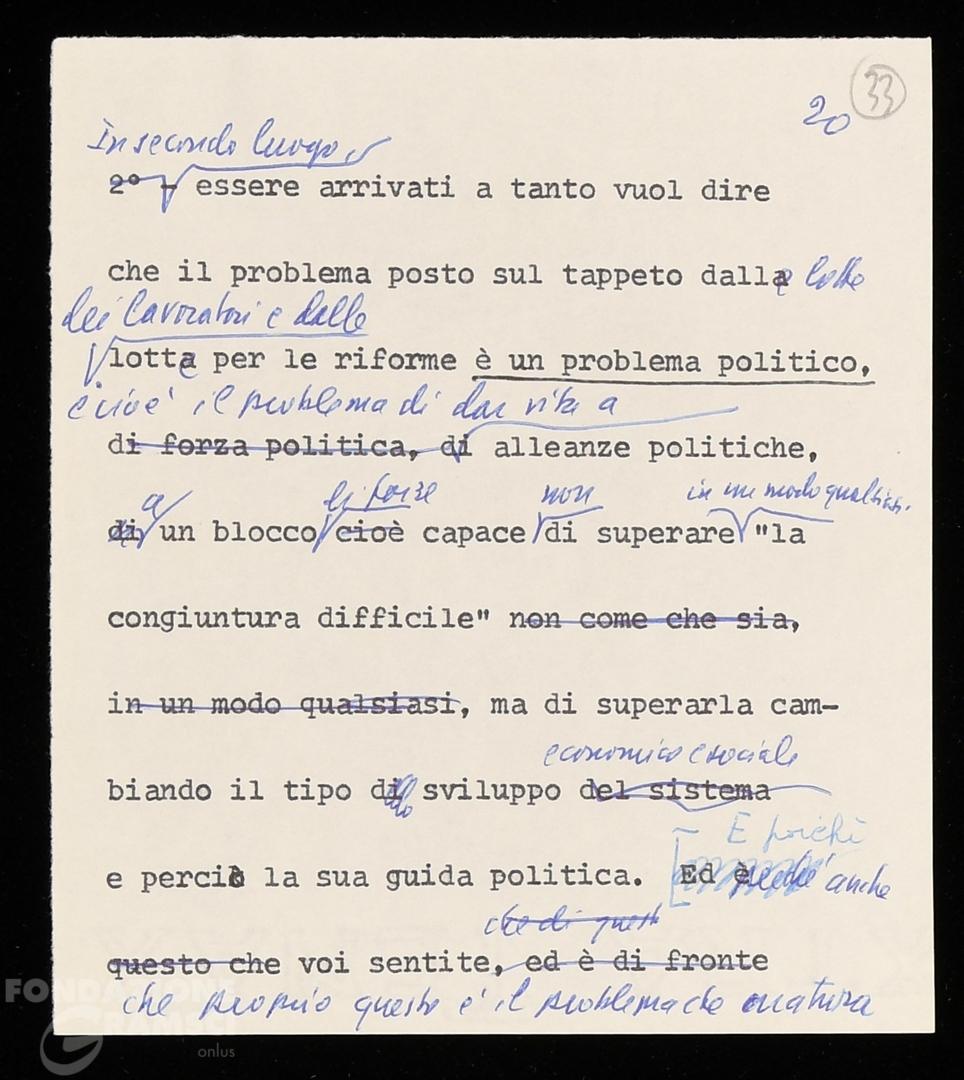 20 33
In secondo luogo,
2º - essere arrivati a tanto vuol dire
che il problema posto sul tappeto dalle lotte
dei lavoratori e dalle
lotte per le riforme è un problema politico,
e cioè il problema di dar vita a
di forza politica, di alleanze politiche,
a di forze non in un modo qualsiasi
di un blocco cioè capace di superare "la
congiuntura difficile" non come che sia,
in un modo qualsiasi, ma di superarla cam-
economico e sociale
biando il tipo di sviluppo del sistema
E poichè
e perciò la sua guida politica. Ed è anche
che di questo
questo che voi sentite, ed è di fronte
che proprio questo è il problema che matura
FONDAZIONE
GRAMSCI
onlus